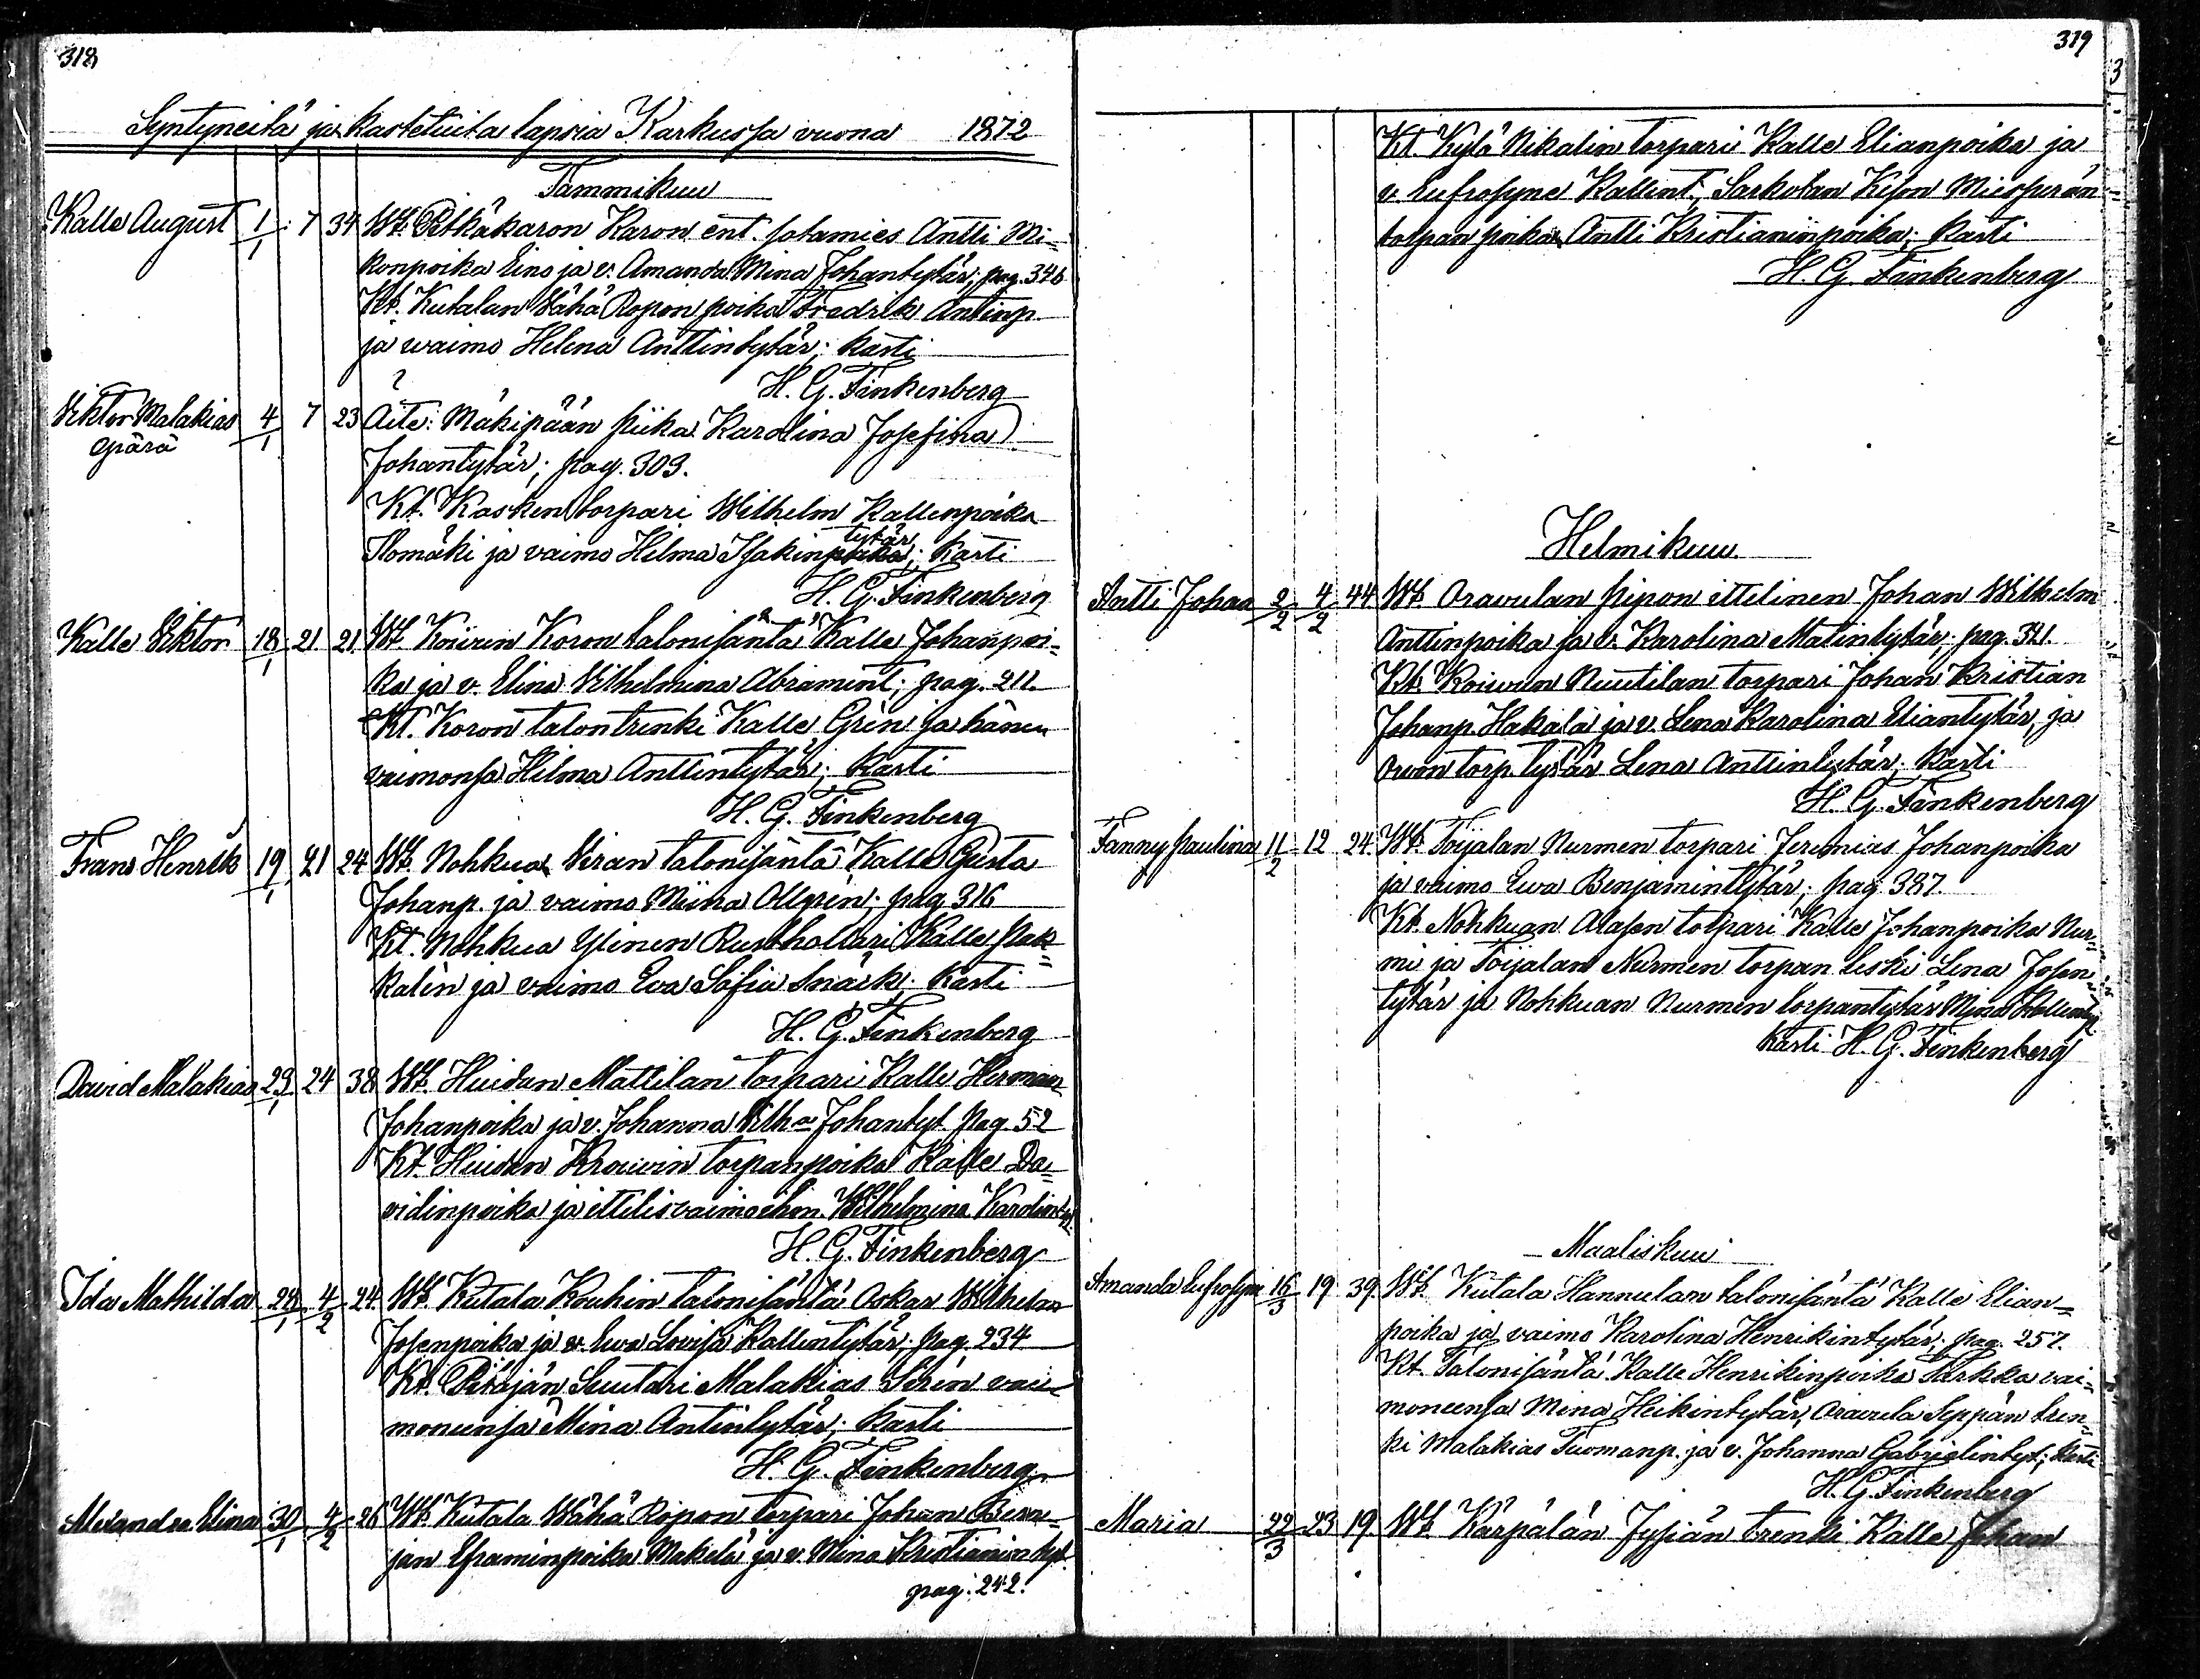 318
Syntyneitä ja kastetuita lapsia Karkussa vuona 1872
Tammikuu
Kalle August 1/1 7 34 Wt. Pitkäkaron Karon ent. sotamies Antti Mi=
konpoika Eino ja v. Amanda Mina Johantytär; pag. 346
Kt. Kutalan Wähä Ropon poika Fredrik Antinp.
ja waimo Helena Anttintytär; kasti
H. G. Finkenberg
Viktor Malakias 4/1 7 23 Äite: Mäkipään piika Karolina Josefina
äpärä
Johantytär; pag. 303.
Kt. Kasken torpari Wilhelm Kallenpoika
tytär
Ilomäki ja vaimo Helma Isakinpoika; kasti
H. G. Finkenberg
Kalle Viktor 18/1 21 21 Wt. Koivun Koron talonisäntä Kalle Johanpoi=
ka ja v. Elina Vilhelmina Abramint; pag. 211.
Kt. Koron talon trenki Kalle Grén ja hänen
vaimonsa Hilma Anttintytär; kasti
H. G. Finkenberg
Frans Henrik 19/1 21 24 Wt. Nohkua Viran talonisäntä Kalle Gusta
Johanp. ja vaimo Miina Ollgrén; pag 316
Kt. Nohkua Ylinen Rusthollari Kalle Pak=
kalén ja vaimo Eva Sofia Snäck; kasti
H. G. Finkenberg
David Malakias 23/1 24 38 Wt. Huidan Mattilan torpari Kalle Herman
Johanpoika ja v. Johanna Vilh:a Johantyt. Pag. 52
Kt. Huidan Krouvin torpanpoika Kalle Da=
vidinpoika ja ittelisvaimoihm. Wilhelmina Karolint.
H. G. Finkenberg
Ida Mathilda 28/1 4/2 24 Wt. Kutala Kouhin talonisäntä Oskar Wilhelm
Josenpoika ja v. Ewa Lovisa Kallentytär; pag. 234
Kt. Pitäjän Suutari Malakias Sirén vai=
moneensa Mina Antintytär; kasti
H. G. Finkenberg
Alexandra Elina 30/1 4/2 26 Wt. Kutala Wähä Ropon torpari Johan Benn=
jam Eframinpoika Mäkelä ja v. Mina Kristianin tyt.
pag. 242.
319
Kt. Kylä Nikalin torpari Kalle Elianpoika ja
v. Eufrosyne Kallent., Sarkolan Kyson Miesperän
torpan poika Antti Kristianinpoika; kasti
H. G. Finkenberg
Helmikuu
Antti Johan 2/2 4/2 44 Wt. Aravulan Pipon ittelinen Johan Wilhelm
Anttinpoika ja v. Karolina Matintytär; pag. 341.
Kt. Koivun Nuutilan torpari Johan Kristian
Johanp. Hakala ja v. Lena Karolina Eliantytär, ja
torp. tytär Lena Anttintytär; kasti
H. G. Finkenberg
Fanny Paulina 11/2 12 24 Wt. Toijalan Nurmen torpari Jeremias Johanpoika
ja vaimo Ewa Benjamintytär; pag 387.
Kt. Nohkuan Alasen torpari Kalle Johanpoika Nur=
mi ja Toijalan Nurmen torpan leski Lena Josen=
tytär ja Nohkuan Nurmen torpantytär Mina Kallent.
kasti H. G. Finkenberg
Maaliskuu
Amanda Eufrosyn 16/3 19 39 Wt. Kutala Hannulan talonisäntä Kalle Elian=
poika ja vaimo Karolina Henrikintytär; pag. 257.
Kt. Talonisäntä Kalle Henrikinpoika Sarkka vai=
moneensa Mina Heikintytär, Aravula Seppän tren=
ki Malakias Tuomanp. ja v. Johanna Gabrielintyt; kasti
H. G. Finkenberg
Maria 22/3 23 19 Wt. Kärpälän Jysiän trenki Kalle Johan